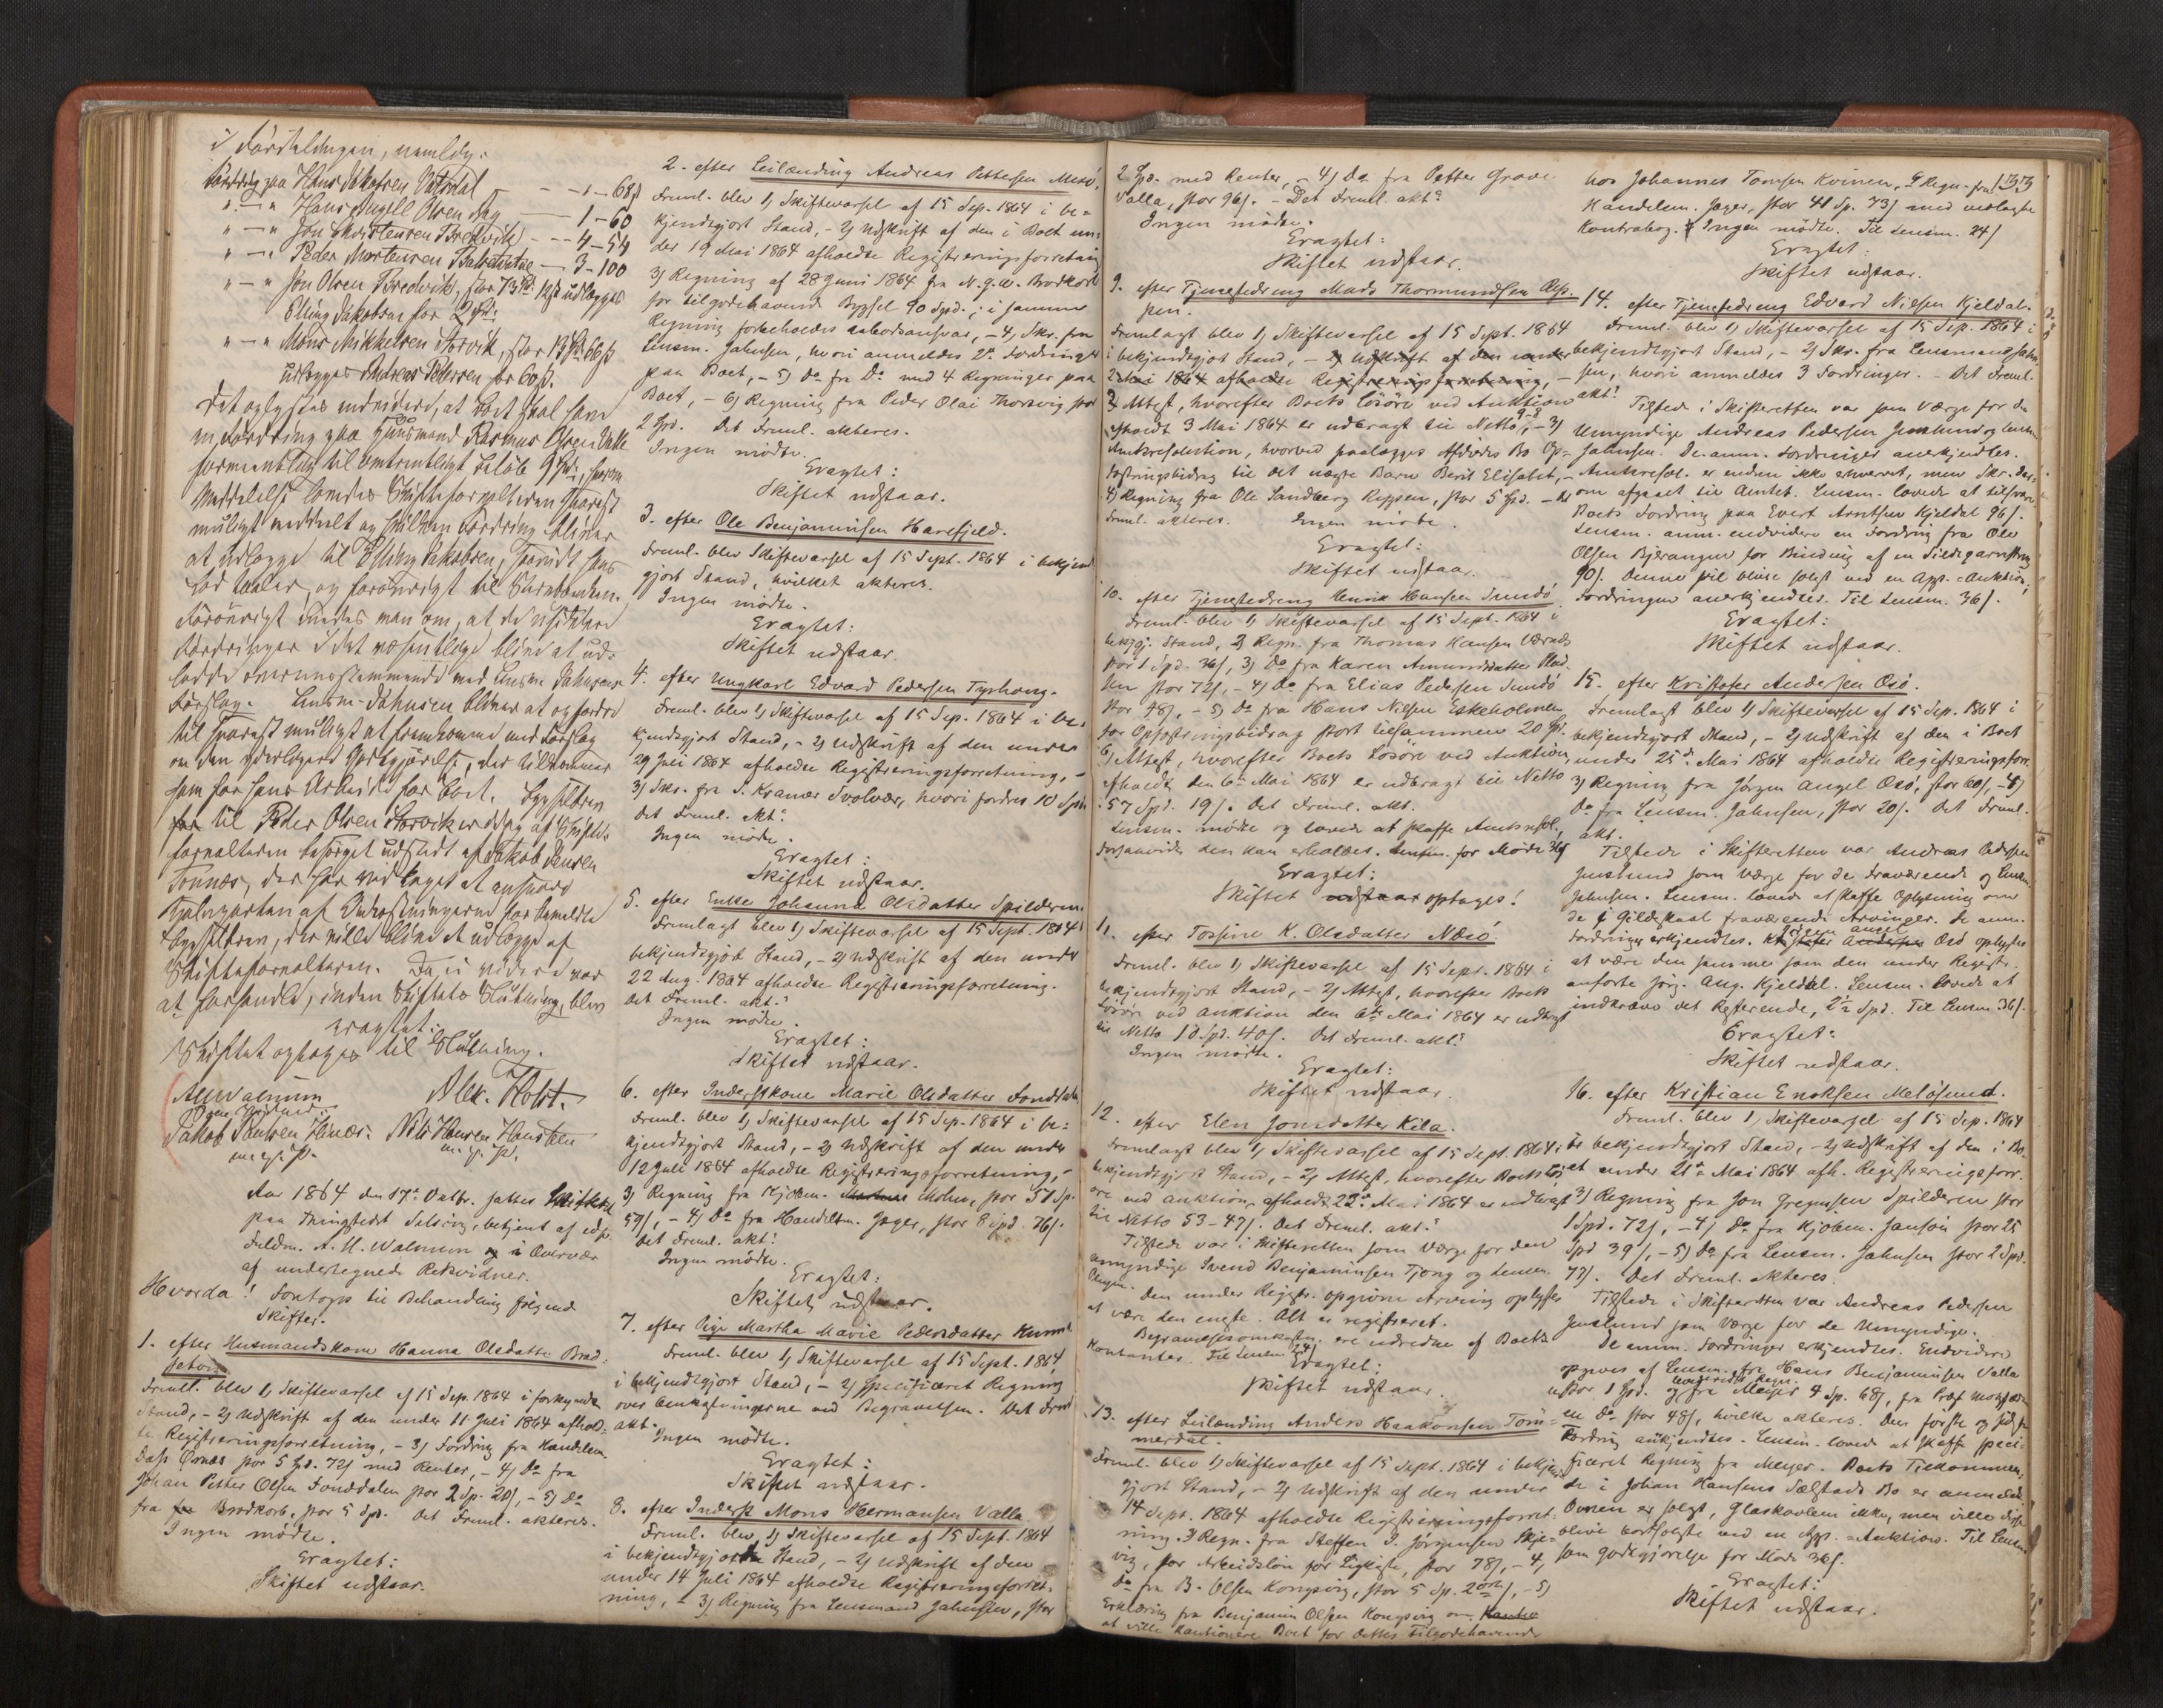 i Fordelingen, nemlig:
Fordring paa Hans Jakobsen Vatsdal — 1-68 ß
" — " Hans Angell Olsen Aag — 1-60
" — " Jon Christensen Bredvik — 4-54
" — " Peder Mortensen — 3-100
" — " Jon Olsen Bredvik, stor 73 Sp: 12 ß udlægges
Elling Jakobsen for 2 Sp:
" — " Mons Mikkelsen Storvik, stor 13 Sp. 66 ß
udlægges Andreas Pedersen for 60 ß.
Det oplystes endvidere, at Boet skal have
en Fordring paa Huusmand Rasmus Olsen
formentlig til omtrentligt Beløb 9 Sp:, hvorom
Meddelelse loves Skifteforvalteren snarest
muligt meddelt og hvilken Fordring bliver
at udlægge til Elling Jakobsen, forsaavidt hans
Lod taaler, og forøvrigt til
Forøvrigt enedes man om, at de usikkre
Fordringer i det væsentlige blive at ud-
lodde overensstemmende med Lensm. Jahnsens
Forslag. Lensm. Jahnsen bliver at opfordre
til snarest muligt at fremkomme med Forslag
om den yderligere Godtgjørelse, der tilkommer
ham for hans Arbeide for Boet. Bygselbrev
for til Peder Olsen Storvik er af Skifte-
forvalteren besørget udstedt af Jakob Paulsen
Tonnes, der har vedtaget at ansvare
Halvparten af Omkostningerne for bemeldte
Bygselbrev, der ville blive at udlægge af
Skifteforvalteren. Da ei videre var
at forhandle, inden Skiftets Slutning, blev
Eragtet:
Skiftet optages til Slutning.
A U Walnum Alex. Holst.
Jakob Paulsen Hjnæs. Nils Hansen Hansteen
m. p. P. m. p. P.
Aar 1864 den 17de Oktbr. sattes Skifteret
paa Thingstedet Selsvig, betjent af edsv.
Fuldm. A. U. Walnum og i Overvær
af undertegnede Retsvidner.
Hvorda! Foretoges til Behandling følgende
Skifter.
1. efter Husmandskone Hanna Olsdatter Brad-
seton
Freml. blev 1, Skiftevarsel af 15 Sep. 1864 i forkyndt
Stand, - 2, Udskrift af den under 11 Juli 1864 afhold-
te Registreringsforretning, - 3, Fordring fra Handelsm.
Dass Ørnes stor 5 Spd. 72 ß med Renter, - 4, Do fra
Johan Petter Olsen Fonddalen stor 2 Sp. 20 ß, - 5, Do
fra fra Brodkorb, stor 5 Spd. Det Freml. akteres.
Ingen mødte.
Eragtet:
Skiftet udstaar.
2. efter Leilænding Andreas Pettersen Mesø.
Freml. blev 1, Skiftevarsel af 15 Sep. 1864 i be-
kjendtgjort Stand, - 2, Udskrift af den i Boet un-
der 19 Mai 1864 afholdte Registreringsforretning
3, Regning af 28 Juni 1864 fra N. g. W. Brodkorb
for tilgodehavende Bygsel 90 Spd.; i samme
Regning forbeholdes aabodsansvar, - 4, Skr. fra
Lensm. Jahnsen, hvori anmeldes 2de Fordringer
paa Boet, - 5, Do fra Do med 4 Regninger paa
Boet, - 6, Regning fra Peder Olai Thorsvig stor
2 Spd. Det Freml. akteres.
Ingen mødte.
Eragtet:
Skiftet udstaar.
3. efter Ole Benjaminsen Harefjeld.
Freml. blev Skiftevarsel af 15 Sept. 1864 i bekjend-
gjort Stand, hvilket akteres.
Ingen mødte.
Eragtet:
Skiftet udstaar.
4. efter Ungkarl Edvard Pedersen Typhong.
Freml. blev 1, Skiftevarsel af 15 Sep. 1864 i be-
kjendtgjort Stand, - 2, Udskrift af den under
29 Juli 1864 afholdte Registreringsforretning, -
3, Skr. fra S. Kramer Svolvær, hvori fordres 10 Spd.
Det Freml. Akt:
Ingen mødte.
Eragtet:
Skiftet udstaar.
5. efter Enke Johanna Olsdatter Spilderen
Fremlagt blev 1, Skiftevarsel af 15 Sept. 1864 i
bekjendtgjort Stand, - 2, Udskrift af den under
22 Aug. 1864 afholdte Registreringsforretning.
Det Freml. akt:
Ingen mødte.
Eragtet:
Skiftet udstaar.
6. efter Inderstkone Marie Olsdatter Fonddalen
Freml. blev 1, Skiftevarsel af 15 Sep. 1864 i be-
kjendtgjort Stand, - 2, Udskrift af den under
12 Juli 1864 afholdte Registreringsforretning, -
3, Regning fra Kjøbm. Mohn, stor 51 Sp.
59 ß, - 4, Do fra Handelsm. Jæger, stor 8 Spd. 76 ß.
Det Freml. akt:
Ingen mødte.
Eragtet:
Skiftet udstaar.
7. efter Pige Martha Marie Pedersdatter
Freml. blev 1, Skiftevarsel af 15 Sept. 1864
i bekjendtgjort Stand, - 2, Specificeret Regning
over Omkostningerne ved Begravelsen. Det Freml.
akt.
Ingen mødte.
Eragtet:
Skiftet udstaar.
8. efter Inderst Mons Hermansen Valla
Freml. blev 1, Skiftevarsel af 15 Sept. 1864
i bekjendtgjort Stand, - 2, Udskrift af den
under 14 Juli 1864 afholdte Registreringsforret-
ning, - 3, Regning fra Lensmand Jahnsen, stor
2 Spd. med Renter, - 4, Do fra Petter Grove
Valla, stor 96 ß. - Det Freml. akt:
Ingen mødte.
Eragtet:
Skiftet udstaar.
9. efter Tjenestedreng Mads Thormundsen Rep-
pen.
Fremlagt blev 1, Skiftevarsel af 15 Sept. 1864
i bekjendtgjort Stand, - 2, Udskrift af den under
2 Mai 1864 afholdte Registreringsforretning, -
2, Attest, hvorefter Boets Løsøre ved Auktion
afholdt 3 Mai 1864 er udbragt til Netto 9-8, - 3,
Amtsresolution, hvorved paalægges Afdødes Bo Op-
fostringsbidrag til det uægte Barn Berit Elisabet, -
4, Regning fra Ole Sandberg Reppen, stor 5 Spd. - Det
Freml. akteres. Ingen mødte.
Eragtet:
Skiftet udstaar.
10. efter Tjenestedreng Henrik Hansen Sundø
Freml. blev 1, Skiftevarsel af 15 Sept. 1864 i
bekjgj. Stand, 2, Regn. fra Thomas Hansen Værnæs
stor 1 Spd. 36 ß, 3, Do fra Karen Amundsdatter
stor 72 ß, - 4, Do fra Elias Pedersen Sundø
stor 48 ß, - 5, Do fra Hans Nilsen Eskeholmen
for Opfostringsbidrag stort tilsammen 20 Spd.
6, Attest, hvorefter Boets Løsøre ved Auktion,
afholdt den 6te Mai 1864 er udbragt til Netto
57 Spd. 19 ß. Det Freml. akt.
Lensm. mødte og lovede at skaffe Amtsresol.,
forsaavidt den kan erholdes. Lensm. for Møde 36 ß
Eragtet:
Skiftet udstaar optages!
11. efter Tossine K. Olsdatter Næsø.
Freml. blev 1, Skiftevarsel af 15 Sept. 1864 i
bekjendtgjort Stand, - 2, Attest, hvorefter Boets
Løsøre ved Auktion den 6te Mai 1864 er udbragt
til Netto 10 Spd. 40 ß. Det Freml. akt:
Ingen mødte.
Eragtet:
Skiftet udstaar.
12. efter Elen Jonsdatter Kila.
Fremlagt blev 1, Skiftevarsel af 15 Sept. 1864 i
bekjendtgjort Stand, - 2, Attest, hvorefter Boets Løs-
øre ved Auktion, afholdt 22de Mai 1864 er udbragt
til Netto 53-47 ß. Det Freml. akt:
Tilstede var i Skifteretten som Værge for den
umyndige Svend Benjaminsen Tjong og Lensm.
Jahnsen. Den under Registr. opgivne Arving oplystes
at være den eneste. Alt er registreret.
Begravelsesomkostn. ere udredne af Boets
Kontanter. Til Lensm. 24 ß
Eragtet:
Skiftet udstaar.
13. efter Leilænding Anders Haakonsen Tøm-
merdal.
Freml. blev 1, Skiftevarsel af 15 Sept. 1864 i bekjend-
gjort Stand, - 2, Udskrift af den under
14 Sept. 1864 afholdte Registreringsforret-
ning. 3, Regn. fra Steffen J. Jørgensen Skje-
vig, for Arbeidsløn for Ligkiste, stor 78 ß, - 4,
Do fra B. Olsen Kongsvig, stor 5 Sp. 2 Ort, - 5,
Erklæring fra Benjamin Olsen Kongsvig om Kautio
at ville kautionere Boet for dettes Tilgodehavende
hos Johannes Tomsen Kvinen, 6, Regn. fra
Handelsm. Jæger, stor 41 Sp. 73 ß med vedlagte
Kontrabog. Ingen mødte. Til Lensm. 24 ß
Eragtet:
Skiftet udstaar.
14. efter Tjenestedreng Edvard Nielsen Kjeldal.
Freml. blev 1, Skiftevarsel af 15 Sep. 1864 i
bekjendtgjort Stand, - 2, Skr. fra Lensmand Jahn-
sen, hvori anmeldes 3 Fordringer. - Det Freml.
akt:
Tilstede i Skifteretten var som Værge for den
Umyndige Andreas Pedersen Jenslund og Lensm.
Jahnsen. De anm. Fordringer anerkjendtes.
Amtsresol. er endnu ikke ervervet, men Skr. der-
om afgaaet til Amtet. Lensm. lovede at tilsvare
Boets Fordring paa Evert Arntsen Kjeldal 96 ß.
Lensm. anm. endvidere en Fordring fra Ole
Olsen Bjerangen for Binding af en Sildegarnstreng
90 ß. Denne vil blive solgt ved en App.-Auktion;
Fordringen anerkjendtes. Til Lensm. 36 ß.
Eragtet:
Skiftet udstaar.
15. efter Kristofer Andersen Osø.
Fremlagt blev 1, Skiftevarsel af 15 Sep. 1864 i
bekjendtgjort Stand, - 2, Udskrift af den i Boet
under 25de Mai 1864 afholdte Registreringsforr.
3, Regning fra Jørgen Angel Osø, stor 60 ß, - 4,
Do fra Lensm. Jahnsen, stor 20 ß. Det Freml.
akt.
Tilstede i Skifteretten var Andreas Pedersen
Jenslund som Værge for de Fraværende og Lensm.
Jahnsen. Lensm. lovede at skaffe Oplysning om
de i Gildeskaal fraværende Arvinger. De anm.
Fordringer erkjendtes. Kristofer Andersen Jørgen Angel Osø oplystes
at være den samme som den under Registr.
anførte Jørg. Ang. Kjeldal. Lensm. lovede at
indkræve det Resterende, 2½ Spd. Til Lensm. 36 ß.
Eragtet:
Skiftet udstaar.
16. efter Kristian Enoksen Meløsund.
Freml. blev 1, Skiftevarsel af 15 Sep. 1864
i bekjendtgjort Stand, - 2, Udskrift af den i Bo-
et under 21de Mai 1864 afh. Registreringsforr.
3, Regning fra Jon Gregusen Spilderen stor
1 Spd. 72 ß, - 4, Do fra Kjøbm. Janson stor 25
Spd. 39 ß, - 5, Do fra Lensm. Jahnsen stor 2 Spd.
73 ß. Det Freml. akteres.
Tilstede i Skifteretten var Andreas Pedersen
Jenslund som Værge for de Umyndige.
De anm. Fordringer erkjendtes. Endvidere
opgives af Lensm. fra Hans Benjaminsen Valla
stor 1 Spd. og fra Meyer 4 Sp. 68 ß, fra
en Do stor 48 ß, hvilke akteres. Den første og sidste
Fordring anerkjendtes. Lensm. lovede at skaffe speci-
ficeret Regning fra Meyer. Boets Tilkommen-
de i Johan Hansens Sælstads Bo er anmeldt.
Ovnen er solgt, Glaskavlene ikke, men ville disse
blive bortsolgte ved en App.-Auktion. Til Lensm.
som Godtgjørelse for Møde 36 ß.
Eragtet:
Skiftet udstaar.